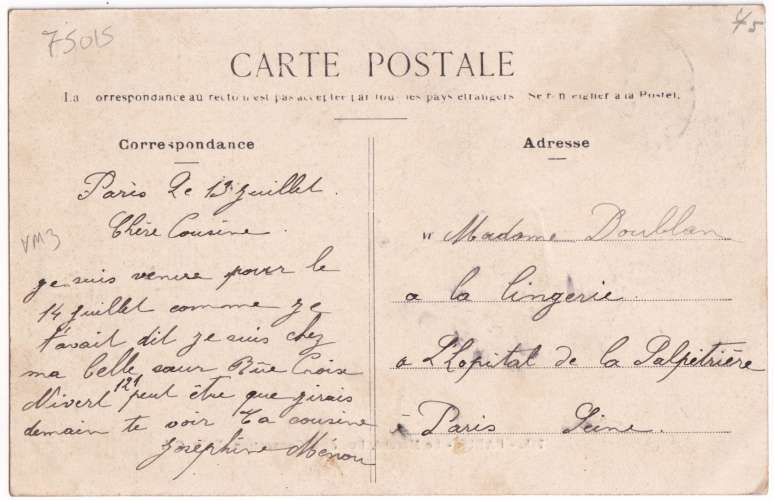 75015
4/5
CARTE POSTALE
La orrespondance au recto n'est pas accepter par tous les pays étrangers. Se renseigner à la Poste.
Correspondance
Paris Le 13 juillet.
Chère Cousine.
VM3
je suis venue pour le
14 juillet comme je
t'avait dit je suis chez
ma belle sœur Rue Croix
Nivert 121 peut être que jirais
demain te voir Ta cousine
Joséphine Ménou
Adresse
M Madame Doublan
a la lingerie.
a L'Hopital de la Salpétrière
à Paris Seine.